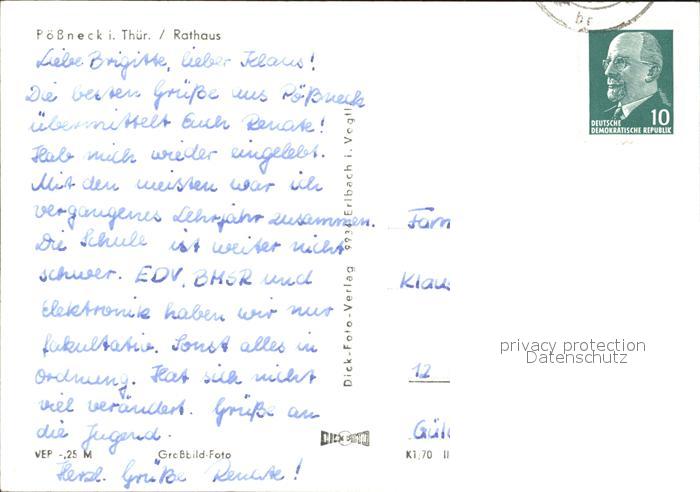 Pößneck i. Thür. / Rathaus
Liebe Brigitte, lieber Klaus!
Die besten Grüße aus Pößneck
übermittelt Euch Renate!
Hab mich wieder eingelebt.
Mit den meisten war ich
vergangenes Lehrjahr zusammen.
Die Schule ist weiter nicht
schwer. EDV, BMSR und
Elektronik haben wir nur
fakultativ. Sonst alles in
Ordnung. Hat sich nicht
viel verändert. Grüße an
die Jugend.
Herzl. Grüße Renate!
VEP -,25 M
Großbild-Foto
Dick-Foto-Verlag 9934 Erlbach i. Vogtl.
DICK FOTO
br
10
DEUTSCHE
DEMOKRATISCHE REPUBLIK
Fam
Klau
12
Gül
K1/70 II
privacy protection
Datenschutz